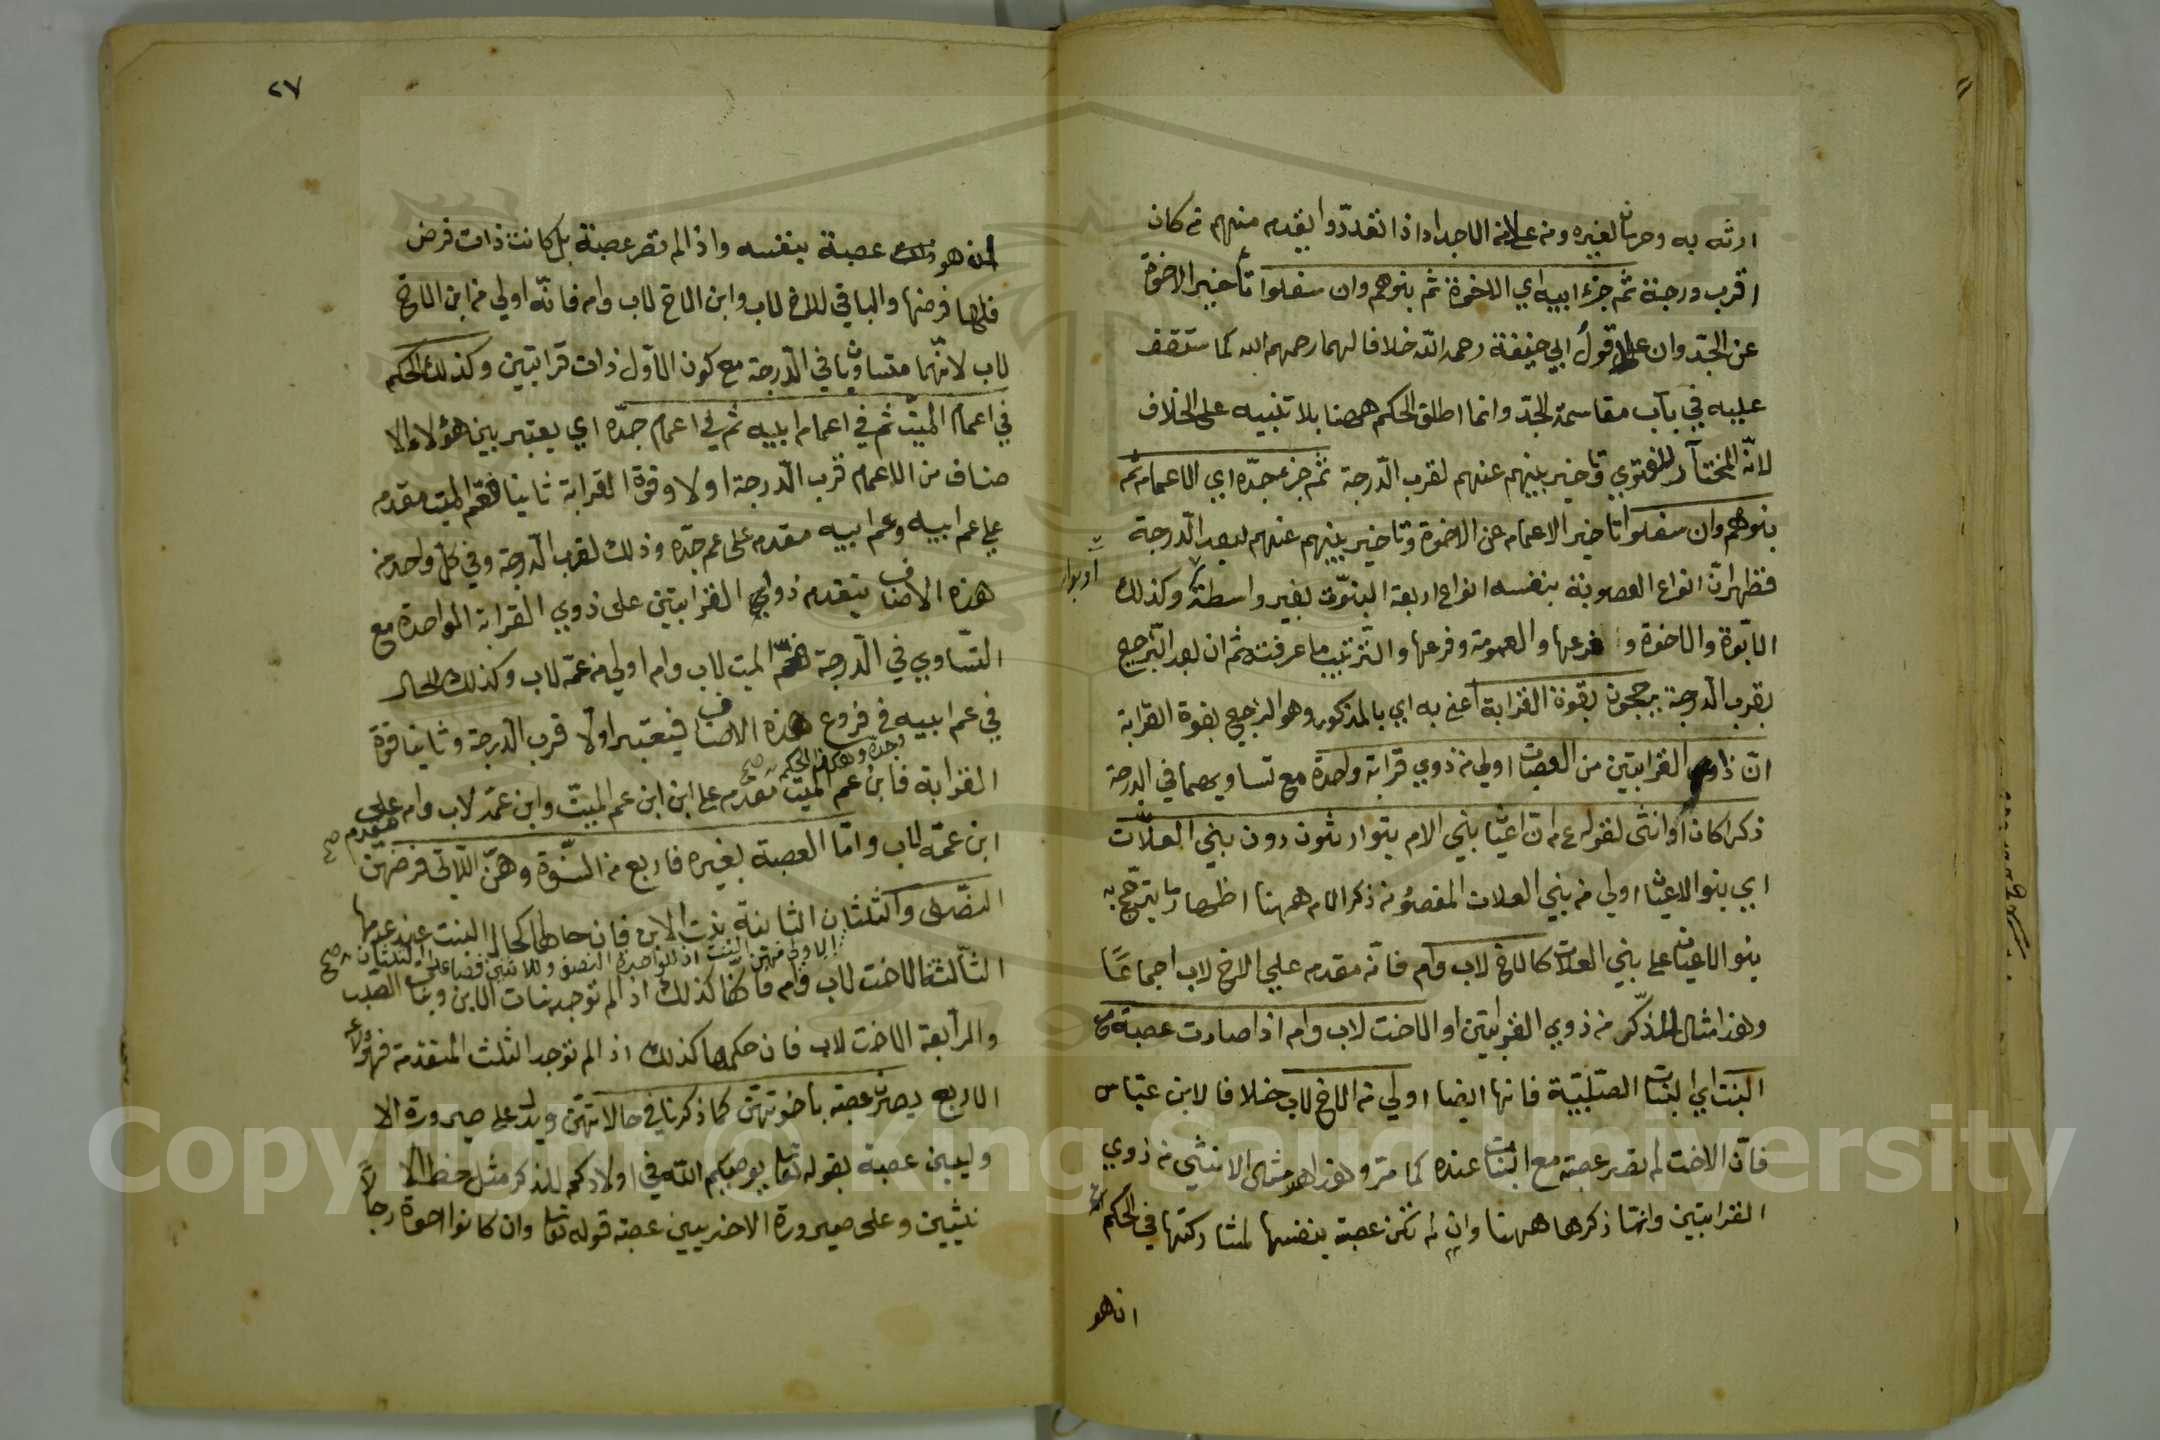 ارثه به وحرمانا لغيره ومن علامة الاجداد اذا تعددوا يقدم منهم من كان
اقرب درجة ثم جزء ابيه اي الاخوة ثم بنوهم وان سفلوا تأخير الاخوة
عن الجد وان على قول ابي حنيفة رحمه الله خلافا لهما رحمهم الله كما ستقف
عليه في باب مقاسمة الجد وانما اطلق الحكم ههنا بلا تنبيه على الخلاف
لانه المختار للفتوي وتأخير بنيهم عنهم لقرب الدرجة ثم جزء جده اي الاعمام ثم
بنوهم وان سفلوا تأخير الاعمام عن الاخوة وتأخير بنيهم عنهم لبعد الدرجة
فظهر ان انواع العصوبة بنفسه انواع اربعة البنوة بغير واسطة وكذلك
الابوة والاخوة وفرعها والعمومة وفرعها والترتيب ما عرفته ثم ان بعد الترجيح
بقرب الدرجة يرجحون بقوة القرابة اعني به اي بالمذكور وهو الترجيح بقوة القرابة
ان ذاوي القرابتين من العصبات اولى من ذوي قرابة واحدة مع تساويهما في الدرجة
ذكرا كان او انثى لقوله ع م ان اعيان بني الام يتوارثون دون بني العلات
اي بنو الاعيان اولى من بني العلات المقصود من ذكر الام ههنا اظهار ما يترجح به
بنو الاعيان على بني العلات كالاخ لاب وام فانه مقدم على الاخ لاب اجماعا
وهذا مثال المذكر من ذوي القرابتين او الاخت لاب وام اذا صارت عصبة مع
البنت اي البنات الصلبية فانها ايضا اولى من الاخ لاب خلافا لابن عباس
فان الاخت لم تصر عصبة مع البنات عنده كما مر وهذا مثال الانثى من ذوي
القرابتين وانما ذكرها ههنا وان لم تكن عصبة بنفسها لمشاركتها في الحكم
ان هو
٢٧
ان هو عصبة بنفسه واذا لم تصر عصبة بل كانت ذات فرض
فلها فرضها والباقي للاخ لاب وابن الاخ لاب وام فانه اولى من ابن الاخ
لاب لانهما متساويا في الدرجة مع كون الاول ذات قرابتين وكذلك الحكم
في اعمام الميت ثم في اعمام ابيه ثم في اعمام جده اي يعتبر بين هؤلاء الا
صناف من الاعمام قرب الدرجة اولا وقوة القرابة ثانيا فعم الميت مقدم
على عم ابيه وعم ابيه مقدم على عم جده وذلك لقرب الدرجة وفي كل واحد من
هذه الاصناف يتقدم ذوي القرابتين على ذوي القرابة الواحدة مع
التساوي في الدرجة فعم الميت لاب وام اولى من عمه لاب وكذلك الحال
في عم ابيه وجده وهكذا الحكم صح
في فروع هذه الاصناف فيعتبر اولا قرب الدرجة وثانيا قوة
القرابة فابن عم الميت مقدم على ابن ابن عم الميت وابن عمه لاب وام على
مقدم صح
ابن عمه لاب واما العصبة بغيره فاربع من النسوة وهن اللاتى فرضهن
النصف والثلثان الثانية بنت الابن فان حالها كحال البنت عند عدمها
الاولى منهن البنت اذ للواحدة النصف وللاثنين فصاعدا الثلثان صح
الثالثة الاخت لاب وام فانها كذلك اذا لم توجد بنات الابن وبنات الصلب
والرابعة الاخت لاب فان حكمها كذلك اذا لم توجد الثلث المتقدمة فهؤلاء
الاربع يصرن عصبة باخوتهن كما ذكرنا في حالاتهن ويدل على صيرورة الا
وليين عصبة بقوله تعا يوصيكم الله في اولادكم للذكر مثل حظ الا
نثيين وعلى صيرورة الاخريين عصبة قوله تعا وان كانوا اخوة رجالا